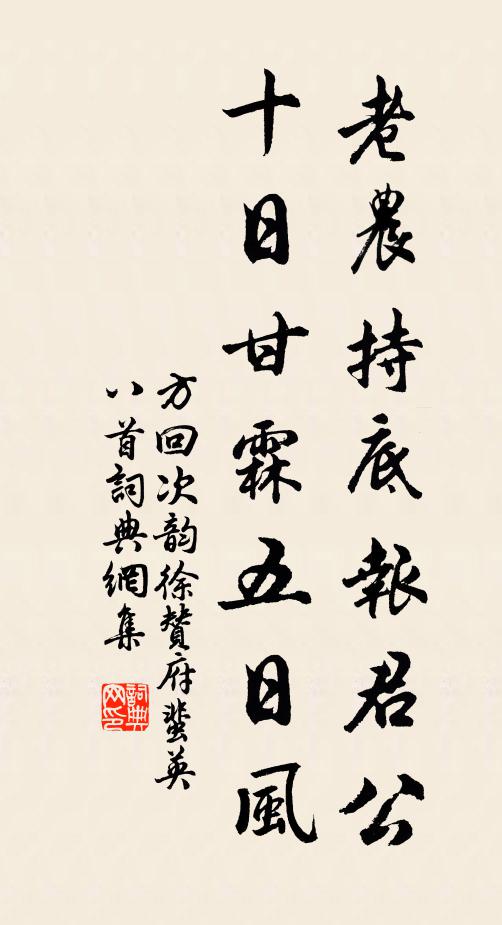 老農持底報君公
十日甘霖五日風
方回次韵徐贊府蜚英
八首詞典網集
詞典網印